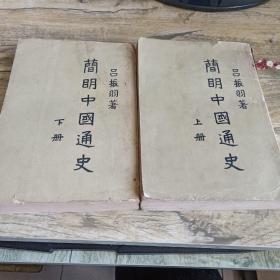 吕振羽著
簡明中國通史
上册
吕振羽著
簡明中國通史
下册